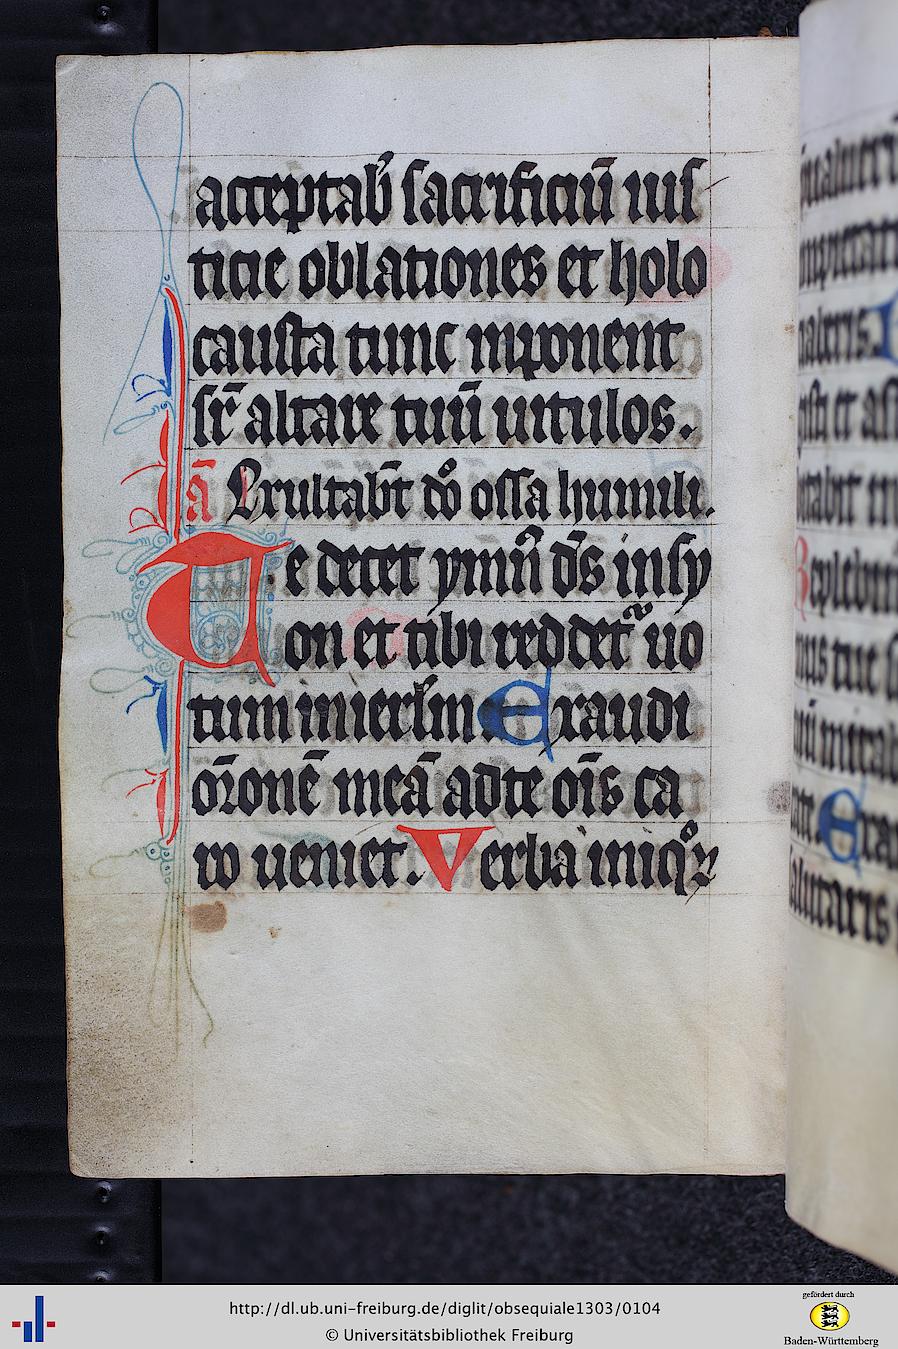 acceptab̄ sacrificiū ius
ticie oblationes et holo
causta tunc inponent
sr̄ altare tuū uitulos.
ā Exultab̄t dō ossa humili.
Te decet ymnū ds̄ insy
on et tibi reddet᷑ uo
tum inierl̄m Exaudi
or̄onē meā adte oīs ca
ro ueniet. Verba iniqͦꝝ
http://dl.ub.uni-freiburg.de/diglit/obsequiale1303/0104
© Universitätsbibliothek Freiburg
gefördert durch
Baden-Württemberg